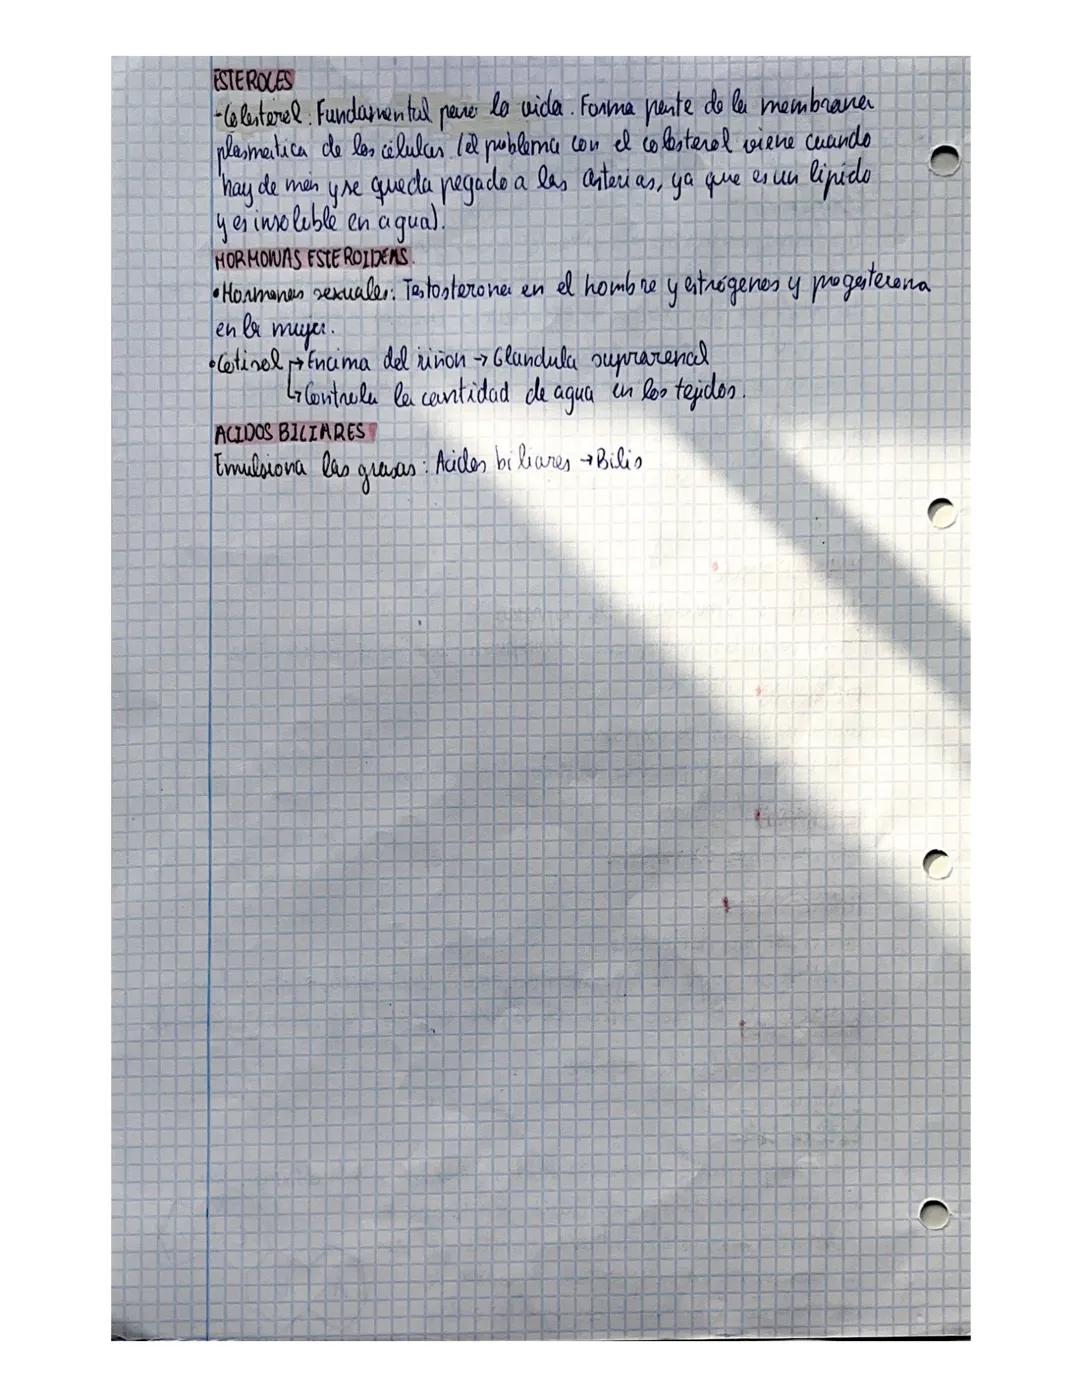 ESTEROLES
-Colesterol: Fundamental para la vida. Forma parte de la membrana
plasmatica de las células. (el problema con el colesterol viene cuando
hay de más y se queda pegado a las arterias, ya que es un lipido
y es insoluble en agua).
HORMONAS ESTEROIDEAS.
•Hormonas sexuales: Testosterona en el hombre y estrógenos y progesterona
en la mujer.
•Cotisol → Encima del riñon → Glandula suprarrenal
↳ Controla la cantidad de agua en los tejidos.
ACIDOS BILIARES
Emulsiona las grasas: Acidos biliares → Bilis